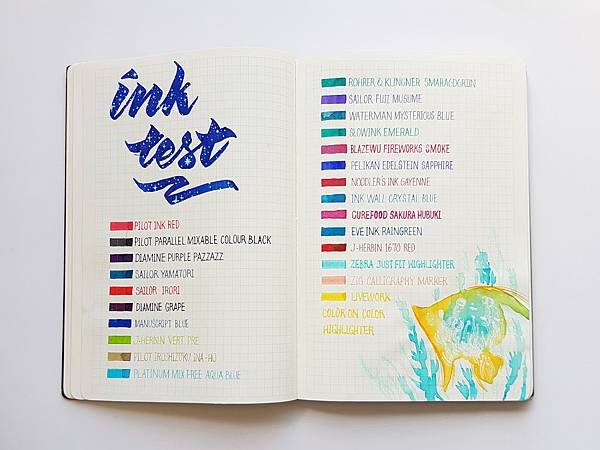 ink
test
PILOT INK RED
PILOT PARALLEL MIXABLE COLOUR BLACK
DIAMINE PURPLE PAZZAZZ
SAILOR YAMATORI
SAILOR IRORI
DIAMINE GRAPE
MANUSCRIPT BLUE
J-HERBIN VERT PRE
PILOT IROSHIZUKU INA-HO
PLATINUM MIX FREE AQUA BLUE
ROHRER & KLINGNER SMARAGDGRÜN
SAILOR FUJI MUSUME
WATERMAN MYSTERIOUS BLUE
SLOWINK EMERALD
BLAZEWU FIREWORKS SMOKE
PELIKAN EDELSTEIN SAPPHIRE
NOODLER'S INK CAYENNE
INK WALL CRYSTAL BLUE
CUREFOOD SAKURA HUBUKI
EVE INK RAINGREEN
J-HERBIN 1670 RED
ZEBRA JUST FIT HIGHLIGHTER
ZIG CALLIGRAPHY MARKER
LIVEWORK
COLOR ON COLOR
HIGHLIGHTER